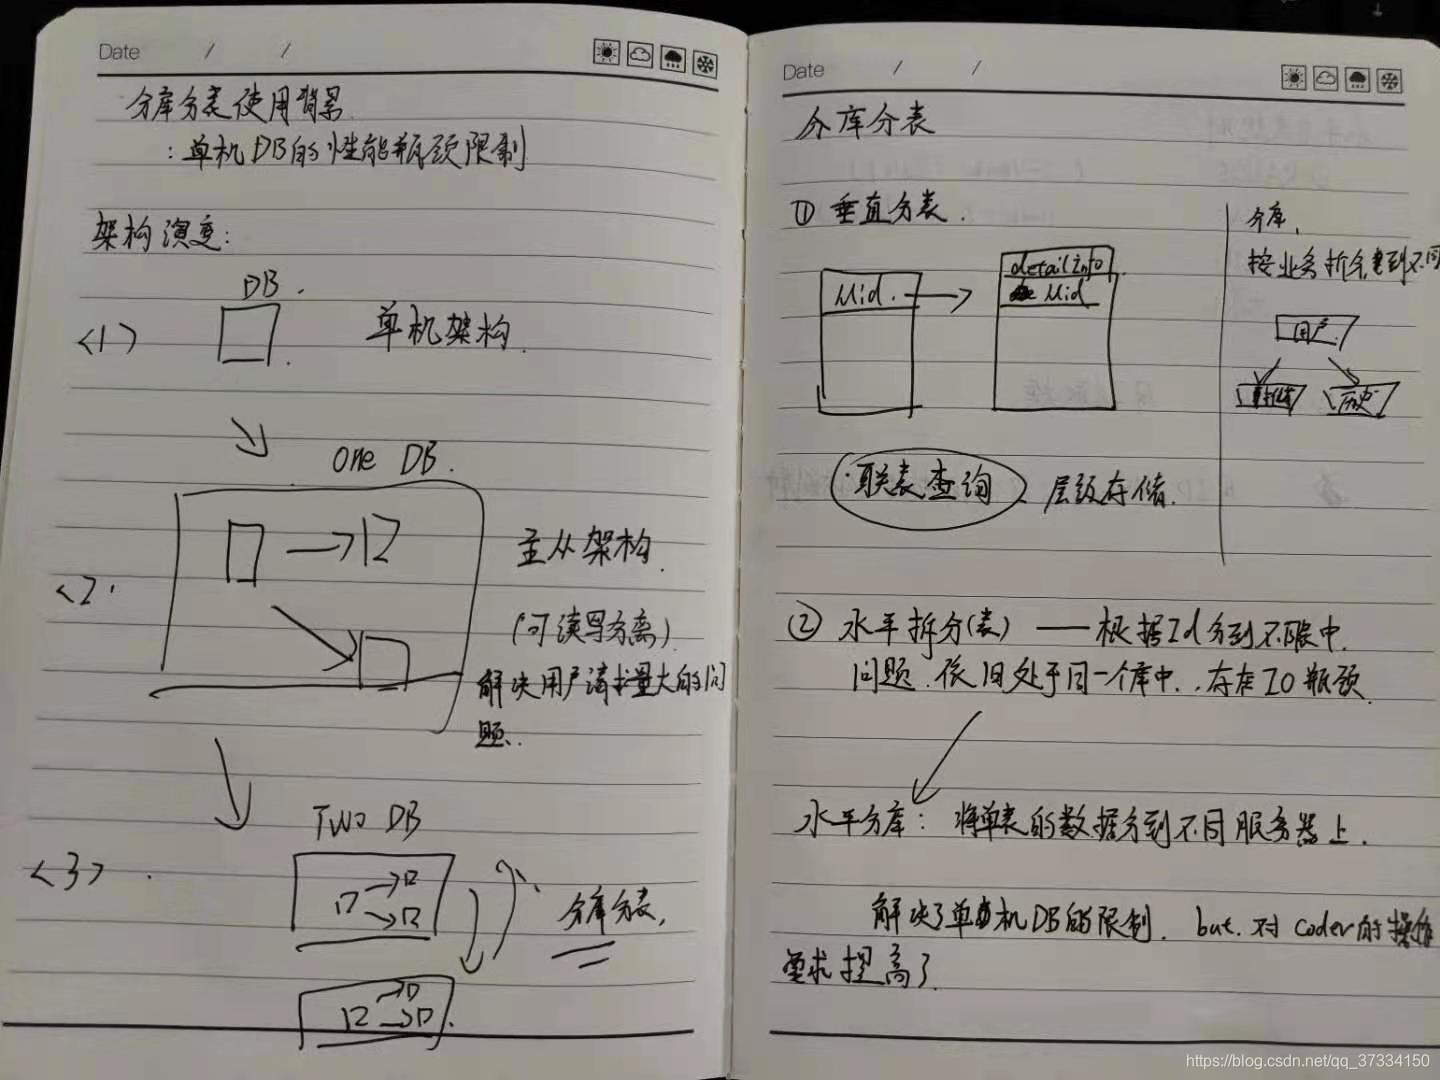 Date / /
分库分表使用背景
：单机DB的性能瓶颈限制
架构演变：
DB.
<1>
单机架构.
one DB.
<2.
主从架构.
(可读写分离)
解决用户请求量大的问
题.
Two DB
<3>
分库分表,
Date / /
分库分表
① 垂直分表.
Uid.
detailInfo
Uid
联表查询
层级存储.
分库,
按业务拆分 到不同
用户
历史
② 水平拆分(表) —— 根据Id分到不限中.
问题.依旧处于同一个库中..存在IO瓶颈
水平分库：将单表的数据分到不同服务器上.
解决了单机DB的限制. but.对coder的操作
要求提高了.
https://blog.csdn.net/qq_37334150